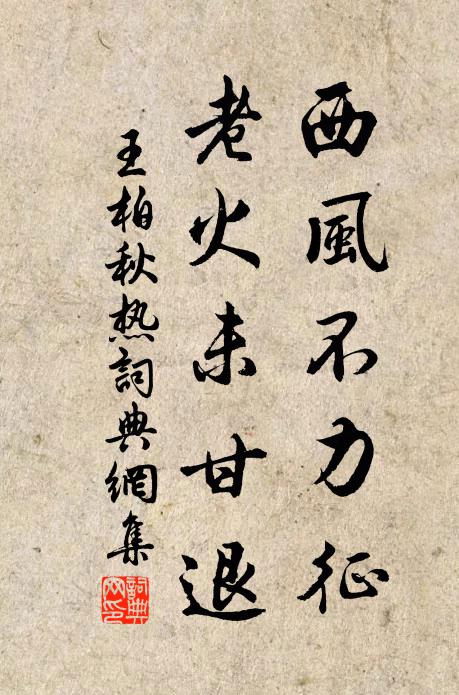 西風不力征
老火未甘退
王柏秋热詞典網集
詞典網印